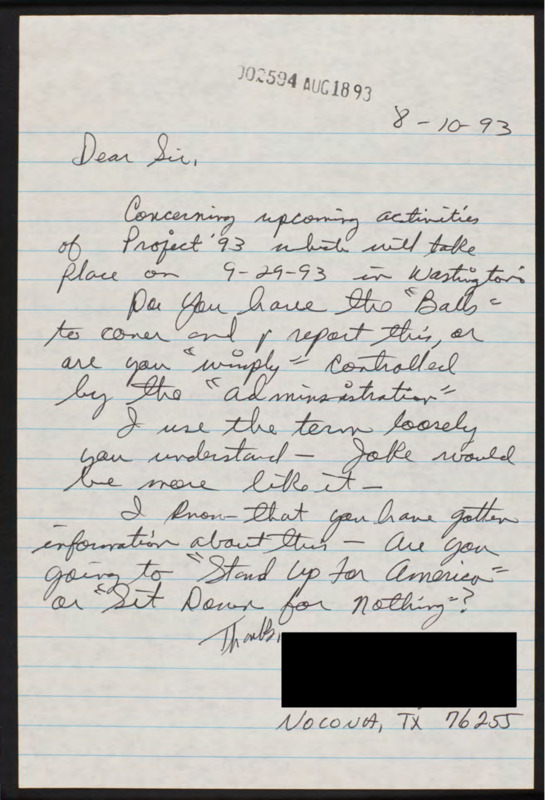 002594 AUG 18 93
8-10-93
Dear Sir,
Concerning upcoming activities
of Project '93 which will take
place on 9-29-93 in Washington
Do you have the "Balls"
to cover and report this, or
are you "wimply" controlled
by the "administration"
I use the term loosely
you understand — Joke would
be more like it —
I know that you have gotten
information about this — Are you
going to "Stand Up For America"
or "Sit Down for Nothing"?
Thanks,
NOCONA, TX 76255